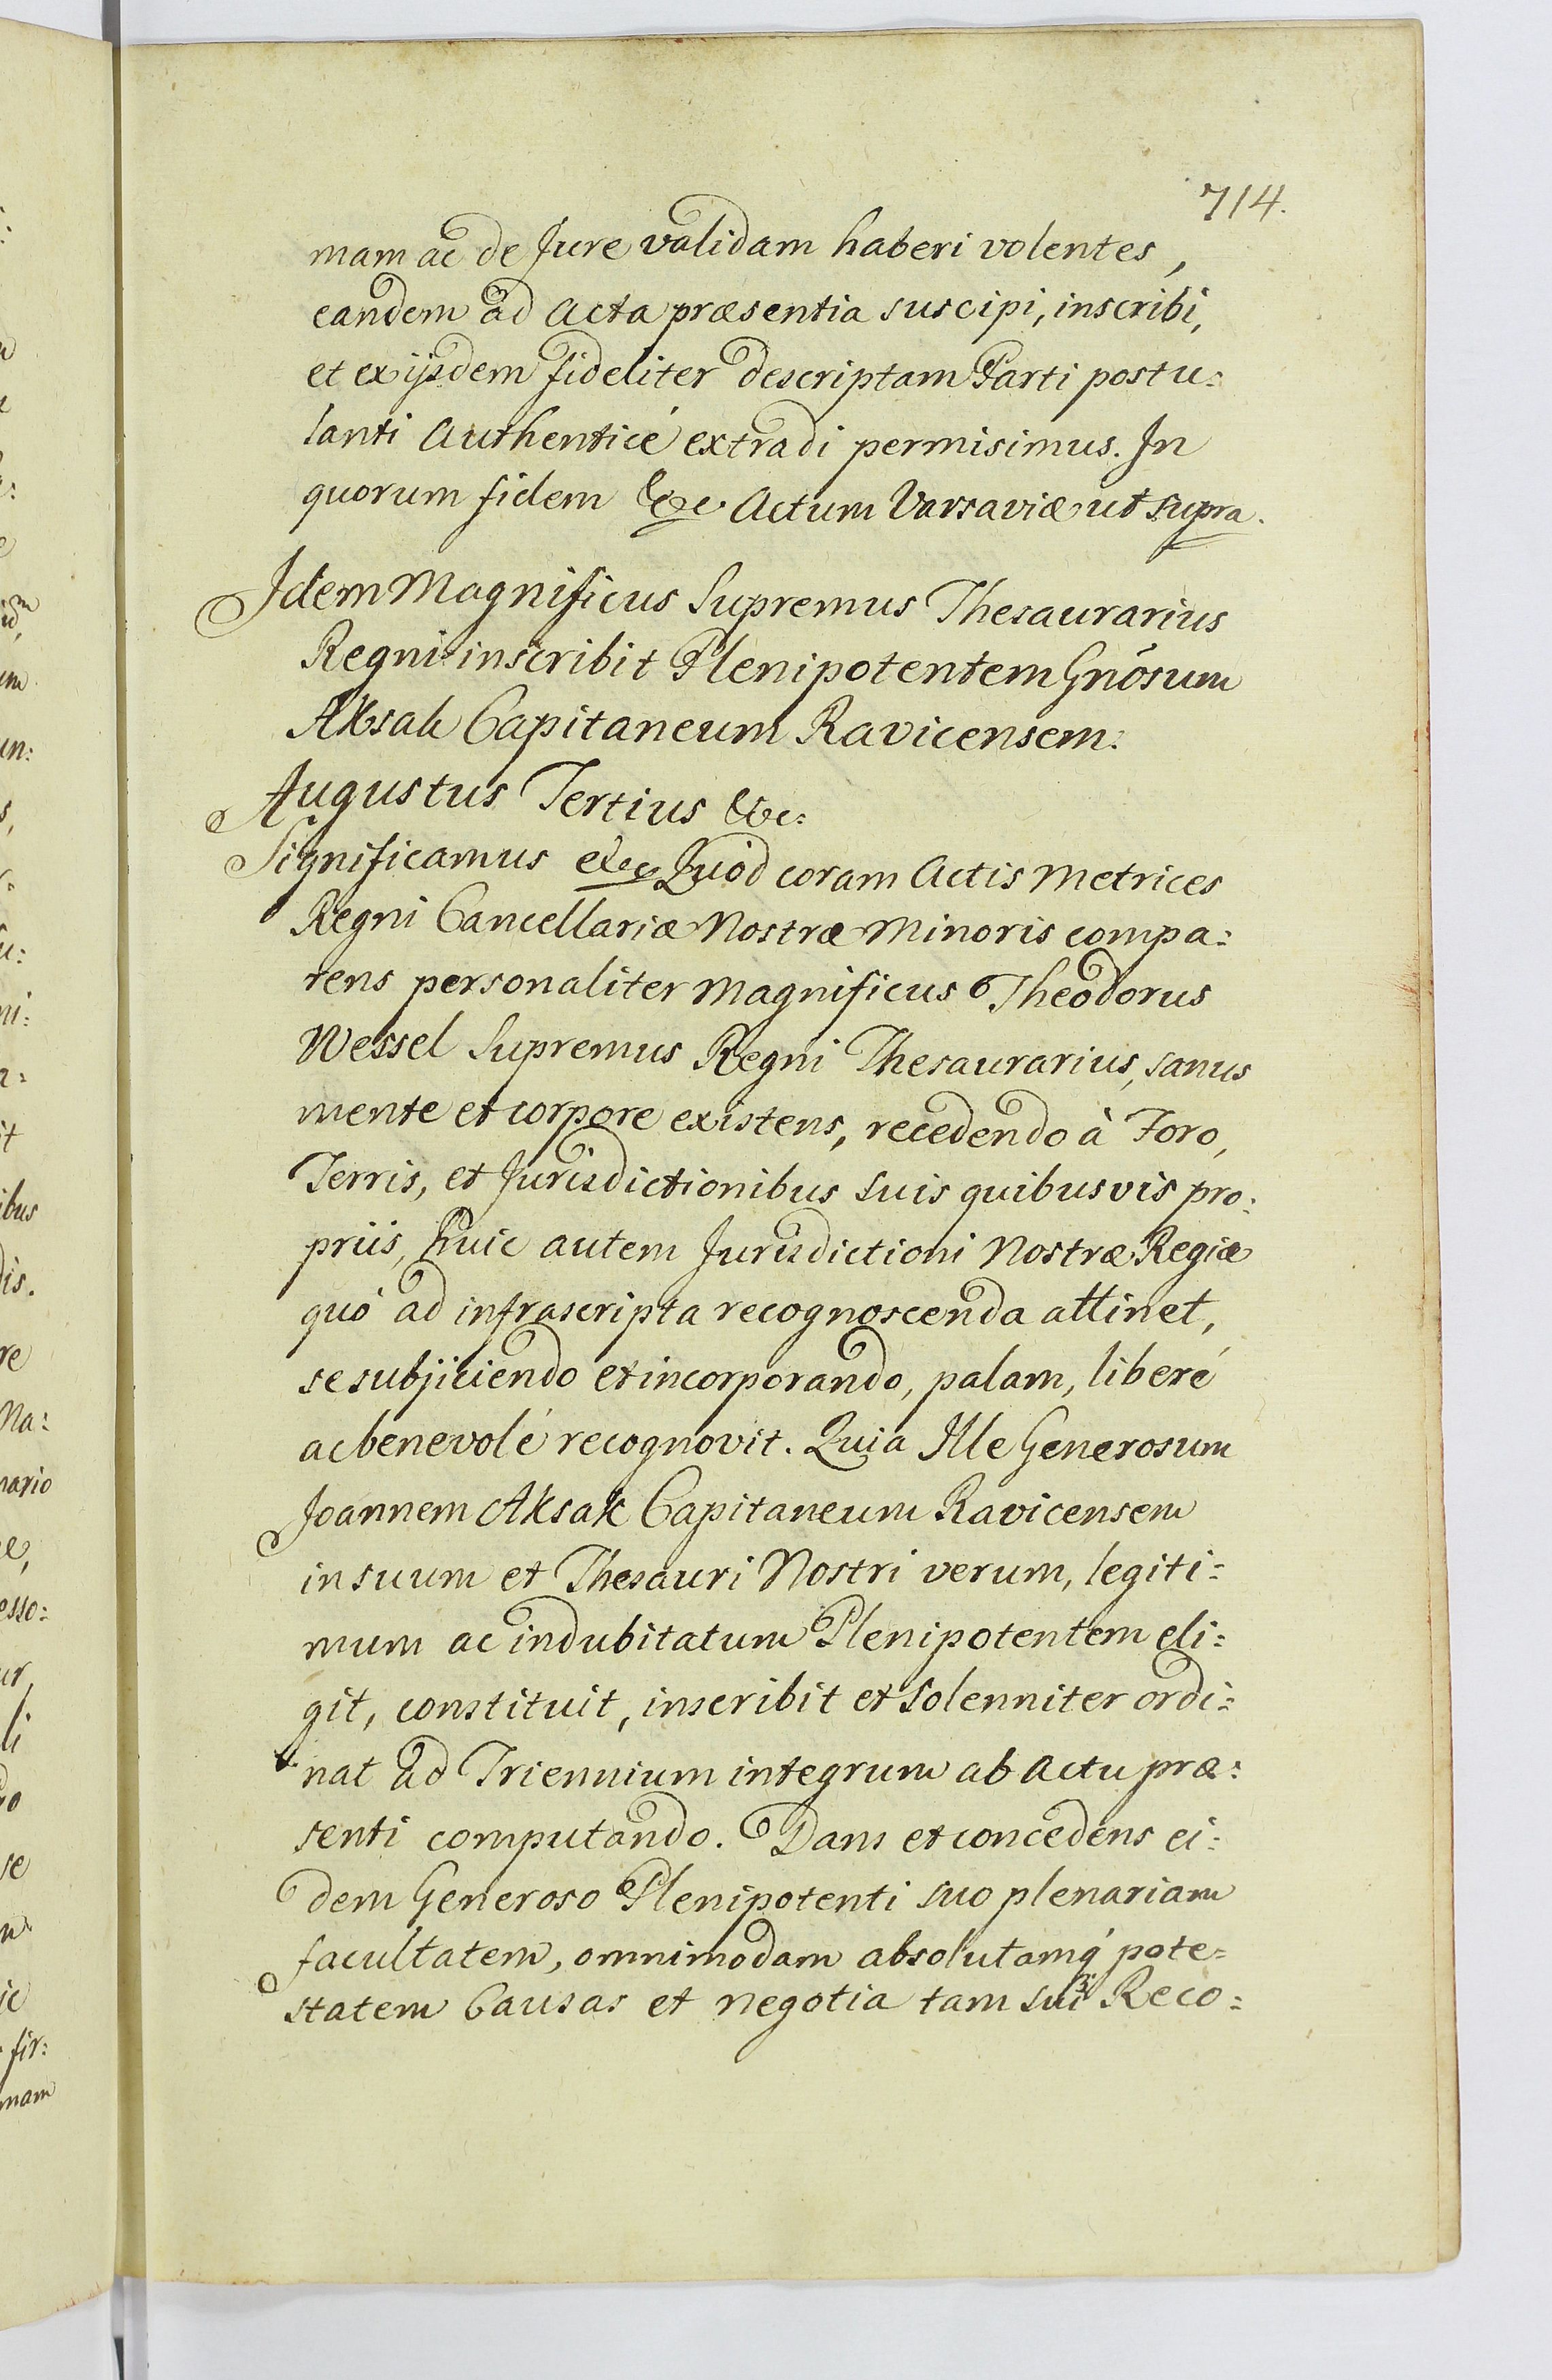 714.
mam ac de Jure validam haberi volentes,
eandem ad acta præsentia suscipi, inscribi,
et ex ijsdem fideliter descriptam Parti postu:
lanti authenticé extradi permisimus. In
quorum fidem &c Actum Varsaviæ ut supra.
Idem Magnificus Supremus Thesaurarius
Regni inscribit Plenipotentem Gnõsum
Aksak Capitaneum Ravicensem:
Augustus Tertius &c:
Significamus &c Quod coram Actis Metrices
Regni Cancellariæ Nostræ Minoris compa:
rens personaliter Magnificus Theodorus
Wessel Supremus Regni Thesaurarius, sanus
mente et corpore existens, recedendo à Foro,
Terris, et Jurisdictionibus suis quibusvis pro:
priis, huic autem Jurisdictioni Nostræ Regiæ
quó ad infrascripta recognoscenda attinet,
se subjiciendo et incorporando, palam, liberé
ac benevolé recognovit. Quia Ille Generosum
Joannem Aksak Capitaneum Ravicensem
in suum et Thesauri Nostri verum, legiti:
mum ac indubitatum Plenipotentem eli:
git, constituit, inscribit et solenniter ordi:
nat ad Triennium integrum ab actu præ:
senti computando. Dans et concedens ei:
dem Generoso Plenipotenti suo plenariam
facultatem, omnimodam absolutamq́ pote:
statem Causas et negotia tam sui Reco: